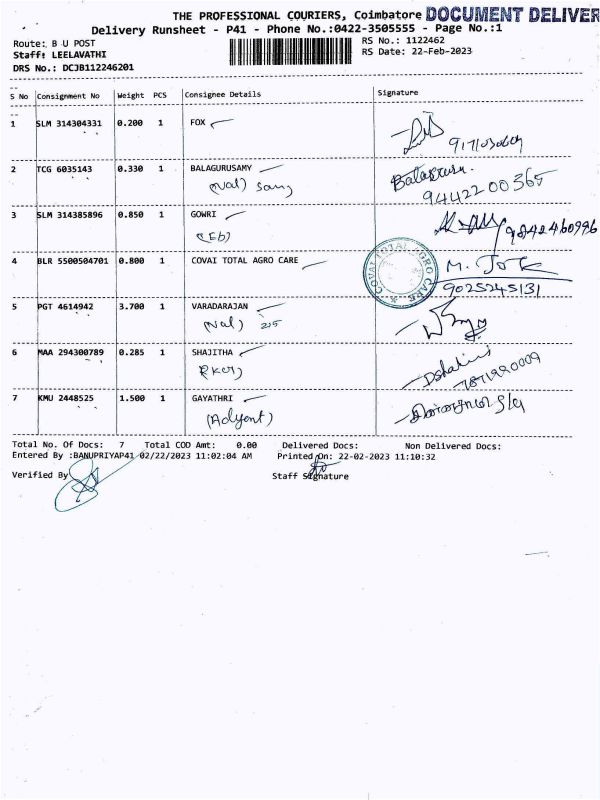 THE PROFESSIONAL COURIERS, Coimbatore DOCUMENT DELIVER
Delivery Runsheet - P41 - Phone No.:0422-3505555 - Page No.:1
Route: B U POST RS No.: 1122462
Staff: LEELAVATHI RS Date: 22-Feb-2023
DRS No.: DCJB112246201
S No Consignment No Weight PCS Consignee Details Signature
1 SLM 314304331 0.200 1 FOX
2 TCG 6035143 0.330 1 BALAGURUSAMY
(Val) Samy 9442200365
3 SLM 314385896 0.850 1 GOWRI
(Eb) 9842460996
4 BLR 5500504701 0.800 1 COVAI TOTAL AGRO CARE
COVAI TOTAL AGRO CARE
9025245131
5 PGT 4614942 3.700 1 VARADARAJAN
(Val)
6 MAA 294300789 0.285 1 SHAJITHA
7871990009
7 KMU 2448525 1.500 1 GAYATHRI
Total No. Of Docs: 7 Total COD Amt: 0.00 Delivered Docs: Non Delivered Docs:
Entered By :BANUPRIYAP41 02/22/2023 11:02:04 AM Printed On: 22-02-2023 11:10:32
Verified By Staff Signature